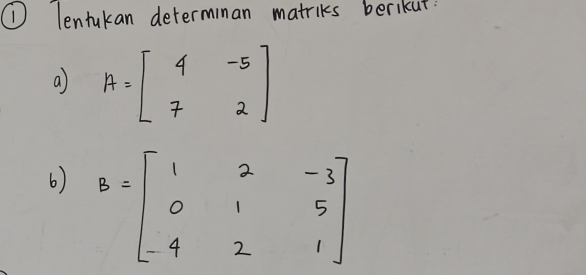 ① Tentukan determinan matriks berikut:
a) A = [ 4 -5
7 2 ]
b) B = [ 1 2 -3
0 1 5
-4 2 1 ]